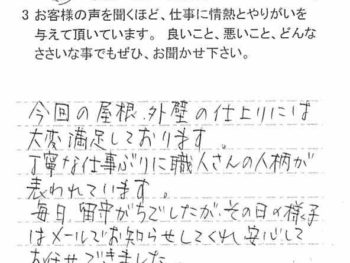 3 お客様の声を聞くほど、仕事に情熱とやりがいを
与えて頂いています。 良いこと、悪いこと、どんな
ささいな事でもぜひ、お聞かせ下さい。
今回の屋根、外壁の仕上りには
大変満足しております。
丁寧な仕事ぶりに職人さんの人柄が
表われています。
毎日、留守がちでしたが、その日の様子
はメールでお知らせしてくれ安心して
お任せできました